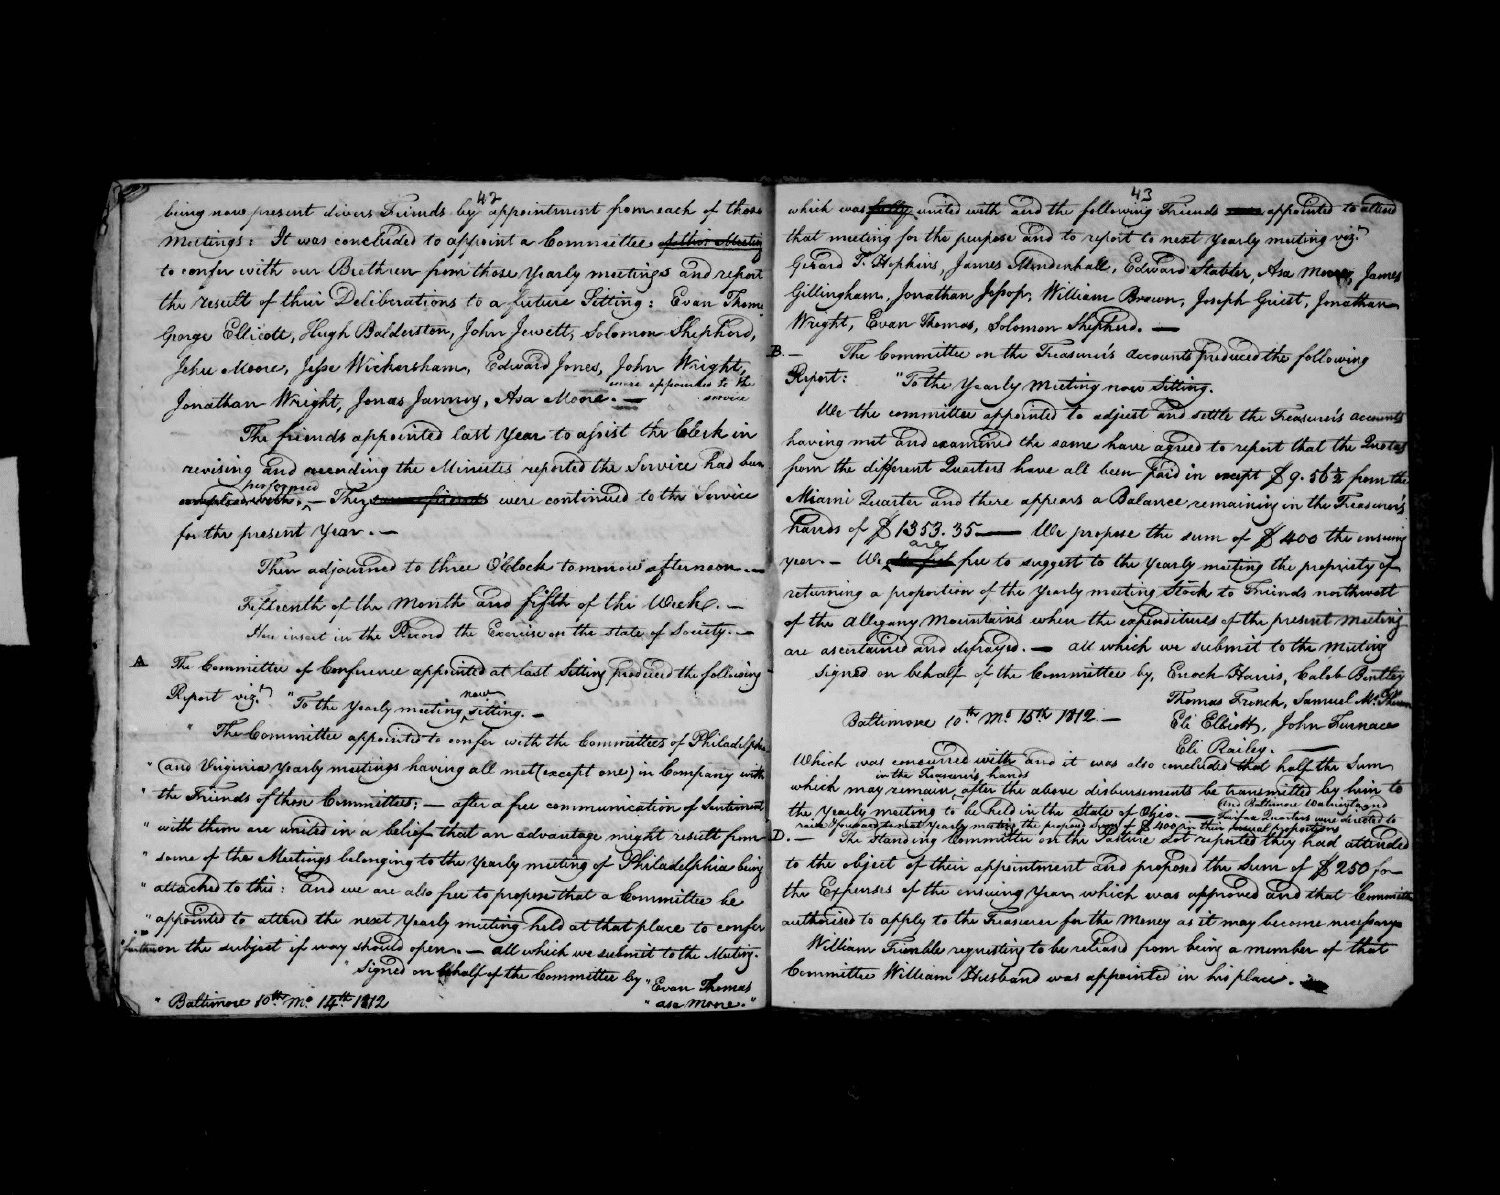 42
being now present divers Friends by appointment from each of those
Meetings: It was concluded to appoint a Committee of this Meeting
to confer with our Brethren from those Yearly meetings and report
the result of their Deliberations to a future Sitting: Evan Thomas
George Ellicott, Hugh Balderston, John Jewett, Solomon Shepherd,
Jehu Moore, Jesse Wickersham, Edward Jones, John Wright,
were appointed to the
Jonathan Wright, Jonas Janney, Asa Moore. — service
The friends appointed last Year to assist the Clerk in
revising and mending the Minutes reported the Service had been
performed
complied with. — They same friends were continued to the Service
for the present Year. —
Then adjourned to three O'Clock tomorrow afternoon. —
Fifteenth of the Month and fifth of the Week. —
Here insert in the Record the Exercise on the state of Society. —
A The Committee of Conference appointed at last Sitting produced the following
now
Report vizt. "To the Yearly meeting sitting. —
" The Committee appointed to confer with the Committees of Philadelphia
" and Virginia Yearly meetings having all met (except one) in Company with
" the Friends of those Committees; — after a free communication of Sentiment
" with them are united in a belief that an advantage might result from
" some of the Meetings belonging to the Yearly meeting of Philadelphia being
" attached to this: and we are also free to propose that a Committee be
" appointed to attend the next Yearly meeting held at that place to confer
" further on the subject if way should open. — all which we submit to the Meeting.
" Signed on behalf of the Committee by "Evan Thomas
" Baltimore 10th Mo. 14th 1812 " Asa Moore."
43
which was fully united with and the following Friends appointed to attend
that meeting for the purpose and to report to next Yearly meeting vizt.
Gerard T. Hopkins, James Mendenhall, Edward Stabler, Asa Moore, James
Gillingham, Jonathan Jessop, William Brown, Joseph Griest, Jonathan
Wright, Evan Thomas, Solomon Shepherd. —
B. — The Committee on the Treasurer's accounts produced the following
Report: "To the Yearly Meeting now Sitting.
We the committee appointed to adjust and settle the Treasurer's accounts
having met and examined the same have agreed to report that the Quotas
from the different Quarters have all been paid in except $9.56½ from the
Miami Quarter and there appears a Balance remaining in the Treasurer's
hands of $1353.35 — We propose the sum of $400 the ensuing
are
year. — We free to suggest to the Yearly meeting the propriety of
returning a proportion of the Yearly meeting Stock to Friends northwest
of the Allegany Mountains when the expenditures of the present meeting
are ascertained and defrayed. — all which we submit to the Meeting
Signed on behalf of the Committee by, Enoch Harris, Caleb Bentley
Thomas French, Samuel
Baltimore 10th Mo 15th 1812. — Eli Elliott, John Furnace
Eli Railey. —
Which was concurred with and it was also concluded that half the Sum
in the Treasurer's hands
which may remain after the above disbursements be transmitted by him to
and Baltimore Warrington and
the Yearly meeting to be held in the State of Ohio. — Fairfax Quarters were directed to
raise & forward to next Yearly meeting the proposed sum of $400 in their usual proportions
D. — The Standing Committee on the Pasture Lot reported they had attended
to the object of their appointment and proposed the Sum of $250 for
the Expenses of the ensuing Year which was approved and that Committee
authorised to apply to the Treasurer for the Money as it may become necessary
William Trimble requesting to be released from being a member of that
Committee William Husband was appointed in his place. —